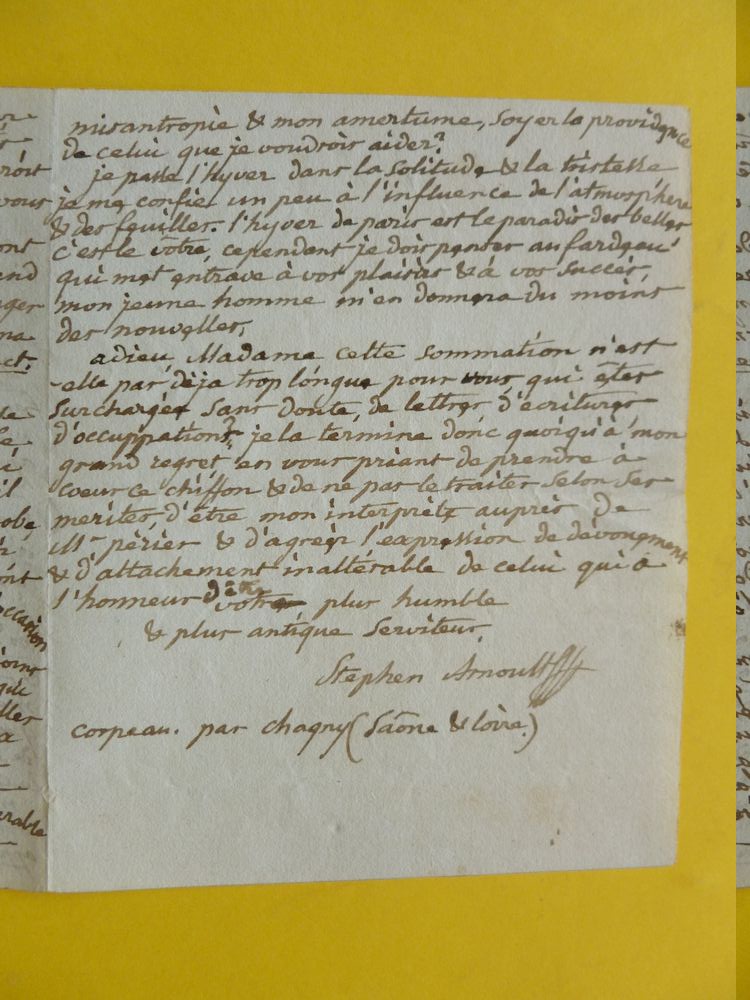 misantropie & mon amertume, soyez la providence
de celui que je voudrois aider?
je passe l'hyver dans la solitude & la tristesse
je me confie un peu à l'influence de l'atmosphère
& des feuilles. l'hyver de paris est le paradis des belles
c'est le vôtre, cependent je dois penser au fardeau
qui met entrave à vos plaisirs & à vos succès,
mon jeune homme m'en donnera du moins
des nouvelles,
adieu, Madame cette sommation n'est
-elle pas déja trop longue pour vous qui êtes
surchargée sans doute, de lettres d'écritures
d'occuppations, je la termine donc quoiqu'à mon
grand regret en vous priant de prendre à
coeur ce chiffon & de ne pas le traiter selon ses
merites, d'être mon interprète auprès de
Mr périer & d'agréer l'expression de dévouement
& d'attachement inaltérable de celui qui a
l'honneur d'être votre plus humble
& plus antique serviteur,
Stephen Arnoult
corpeau. par chagny (Saône & loire.)